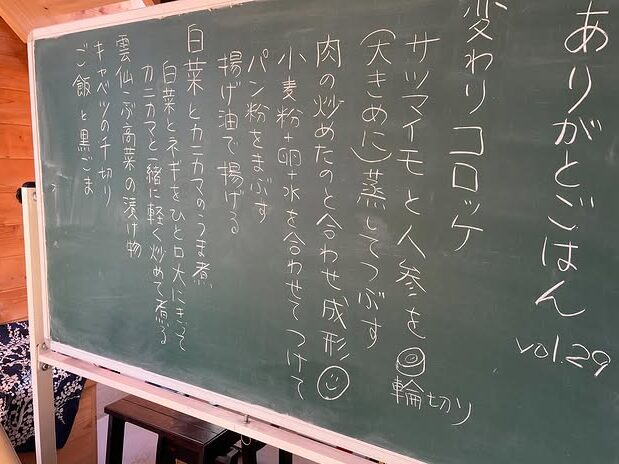 ありがとごはん vol.29
変わりコロッケ
サツマイモと人参を輪切り
(大きめに)蒸してつぶす
肉の炒めたのと合わせ成形
小麦粉+卵+水を合わせてつけて
パン粉をまぶす
揚げ油で揚げる
白菜とカニカマのうま煮
白菜とネギをひと口大にきって
カニカマと一緒に軽く炒めて煮る
雲仙こぶ高菜の漬け物
キャベツの千切り
ご飯と黒ごま